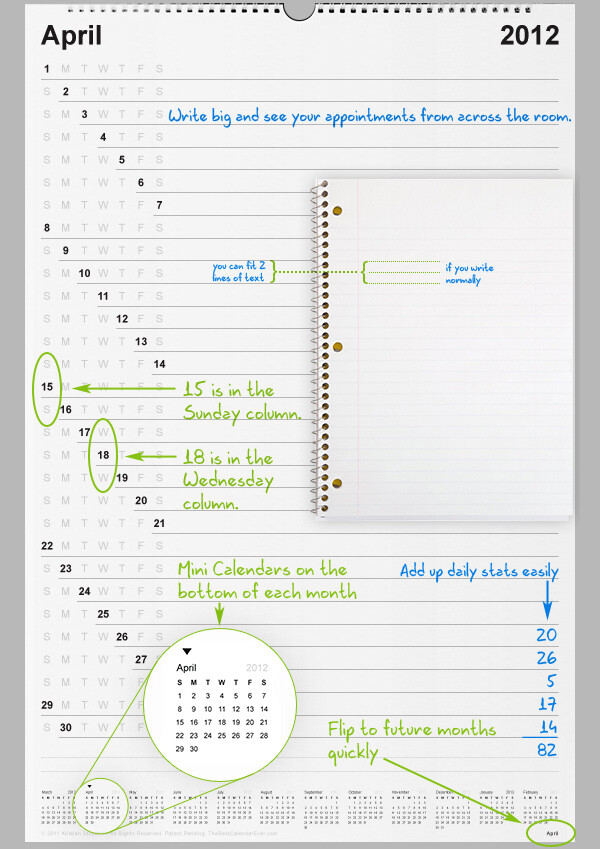 April 2012
1 M T W T F S
S 2
S M 3 Write big and see your appointments from across the room.
S M T 4
S M T W 5
S M T W T 6
S M T W T F 7
8
S 9
S M 10
you can fit 2 if you write
lines of text normally
S M T 11
S M T W 12
S M T W T 13
S M T W T F 14
15 M 15 is in the
S 16 Sunday column.
S M 17
S M T 18 18 is in the
S M T W 19 Wednesday
S M T W T 20 column.
S M T W T F 21
22
S 23 Mini Calendars on the Add up daily stats easily
S M 24 bottom of each month
S M T 25
S M T W 26 20
S M T W T 27 26
5
29 17
S 30 14
82
April 2012
S M T W T F S
1 2 3 4 5 6 7
8 9 10 11 12 13 14
15 16 17 18 19 20 21
22 23 24 25 26 27 28
29 30
Flip to future months
quickly
March 2012 April May June July August September October November December January 2013 February
April